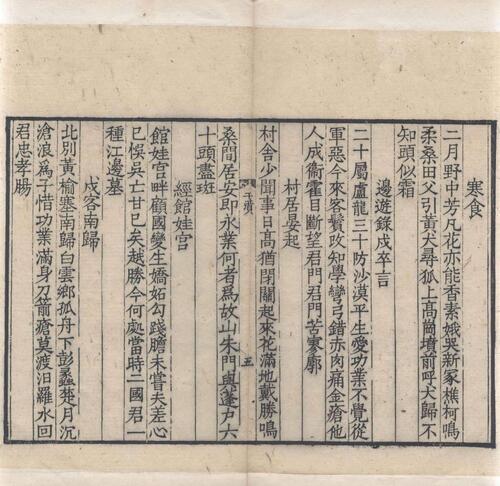 寒食
二月野中芳凡花亦能香素娥哭新冢樵柯鳴
柔桑田父引黃犬尋狐上高崗墳前呼犬歸不
知頭似霜
邊遊錄戍卒言
二十屬盧龍三十防沙漠平生愛功業不覺從
軍惡今來客鬢改知學彎弓錯赤肉痛金瘡他
人成衛霍目斷望君門君門苦寥廓
村居晏起
村舍少聞事日高猶閉關起來花滿地戴勝鳴
于濆
五
桑間居安即永業何者爲故山朱門與蓬户六
十頭盡斑
經館娃宮
館娃宮畔顧國變生嬌妬勾踐膽未嘗夫差心
已悞吳亡甘已矣越勝今何處當時二國君一
種江邊墓
戍客南歸
北別黃榆塞南歸白雲鄉孤舟下彭蠡楚月沉
滄浪爲子惜功業滿身刀箭瘡莫渡汨羅水回
君忠孝腸